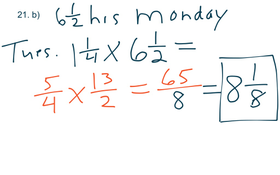 21. b) 6 1/2 hrs monday
Tues. 1 1/4 × 6 1/2 =
5/4 × 13/2 = 65/8 = 8 1/8